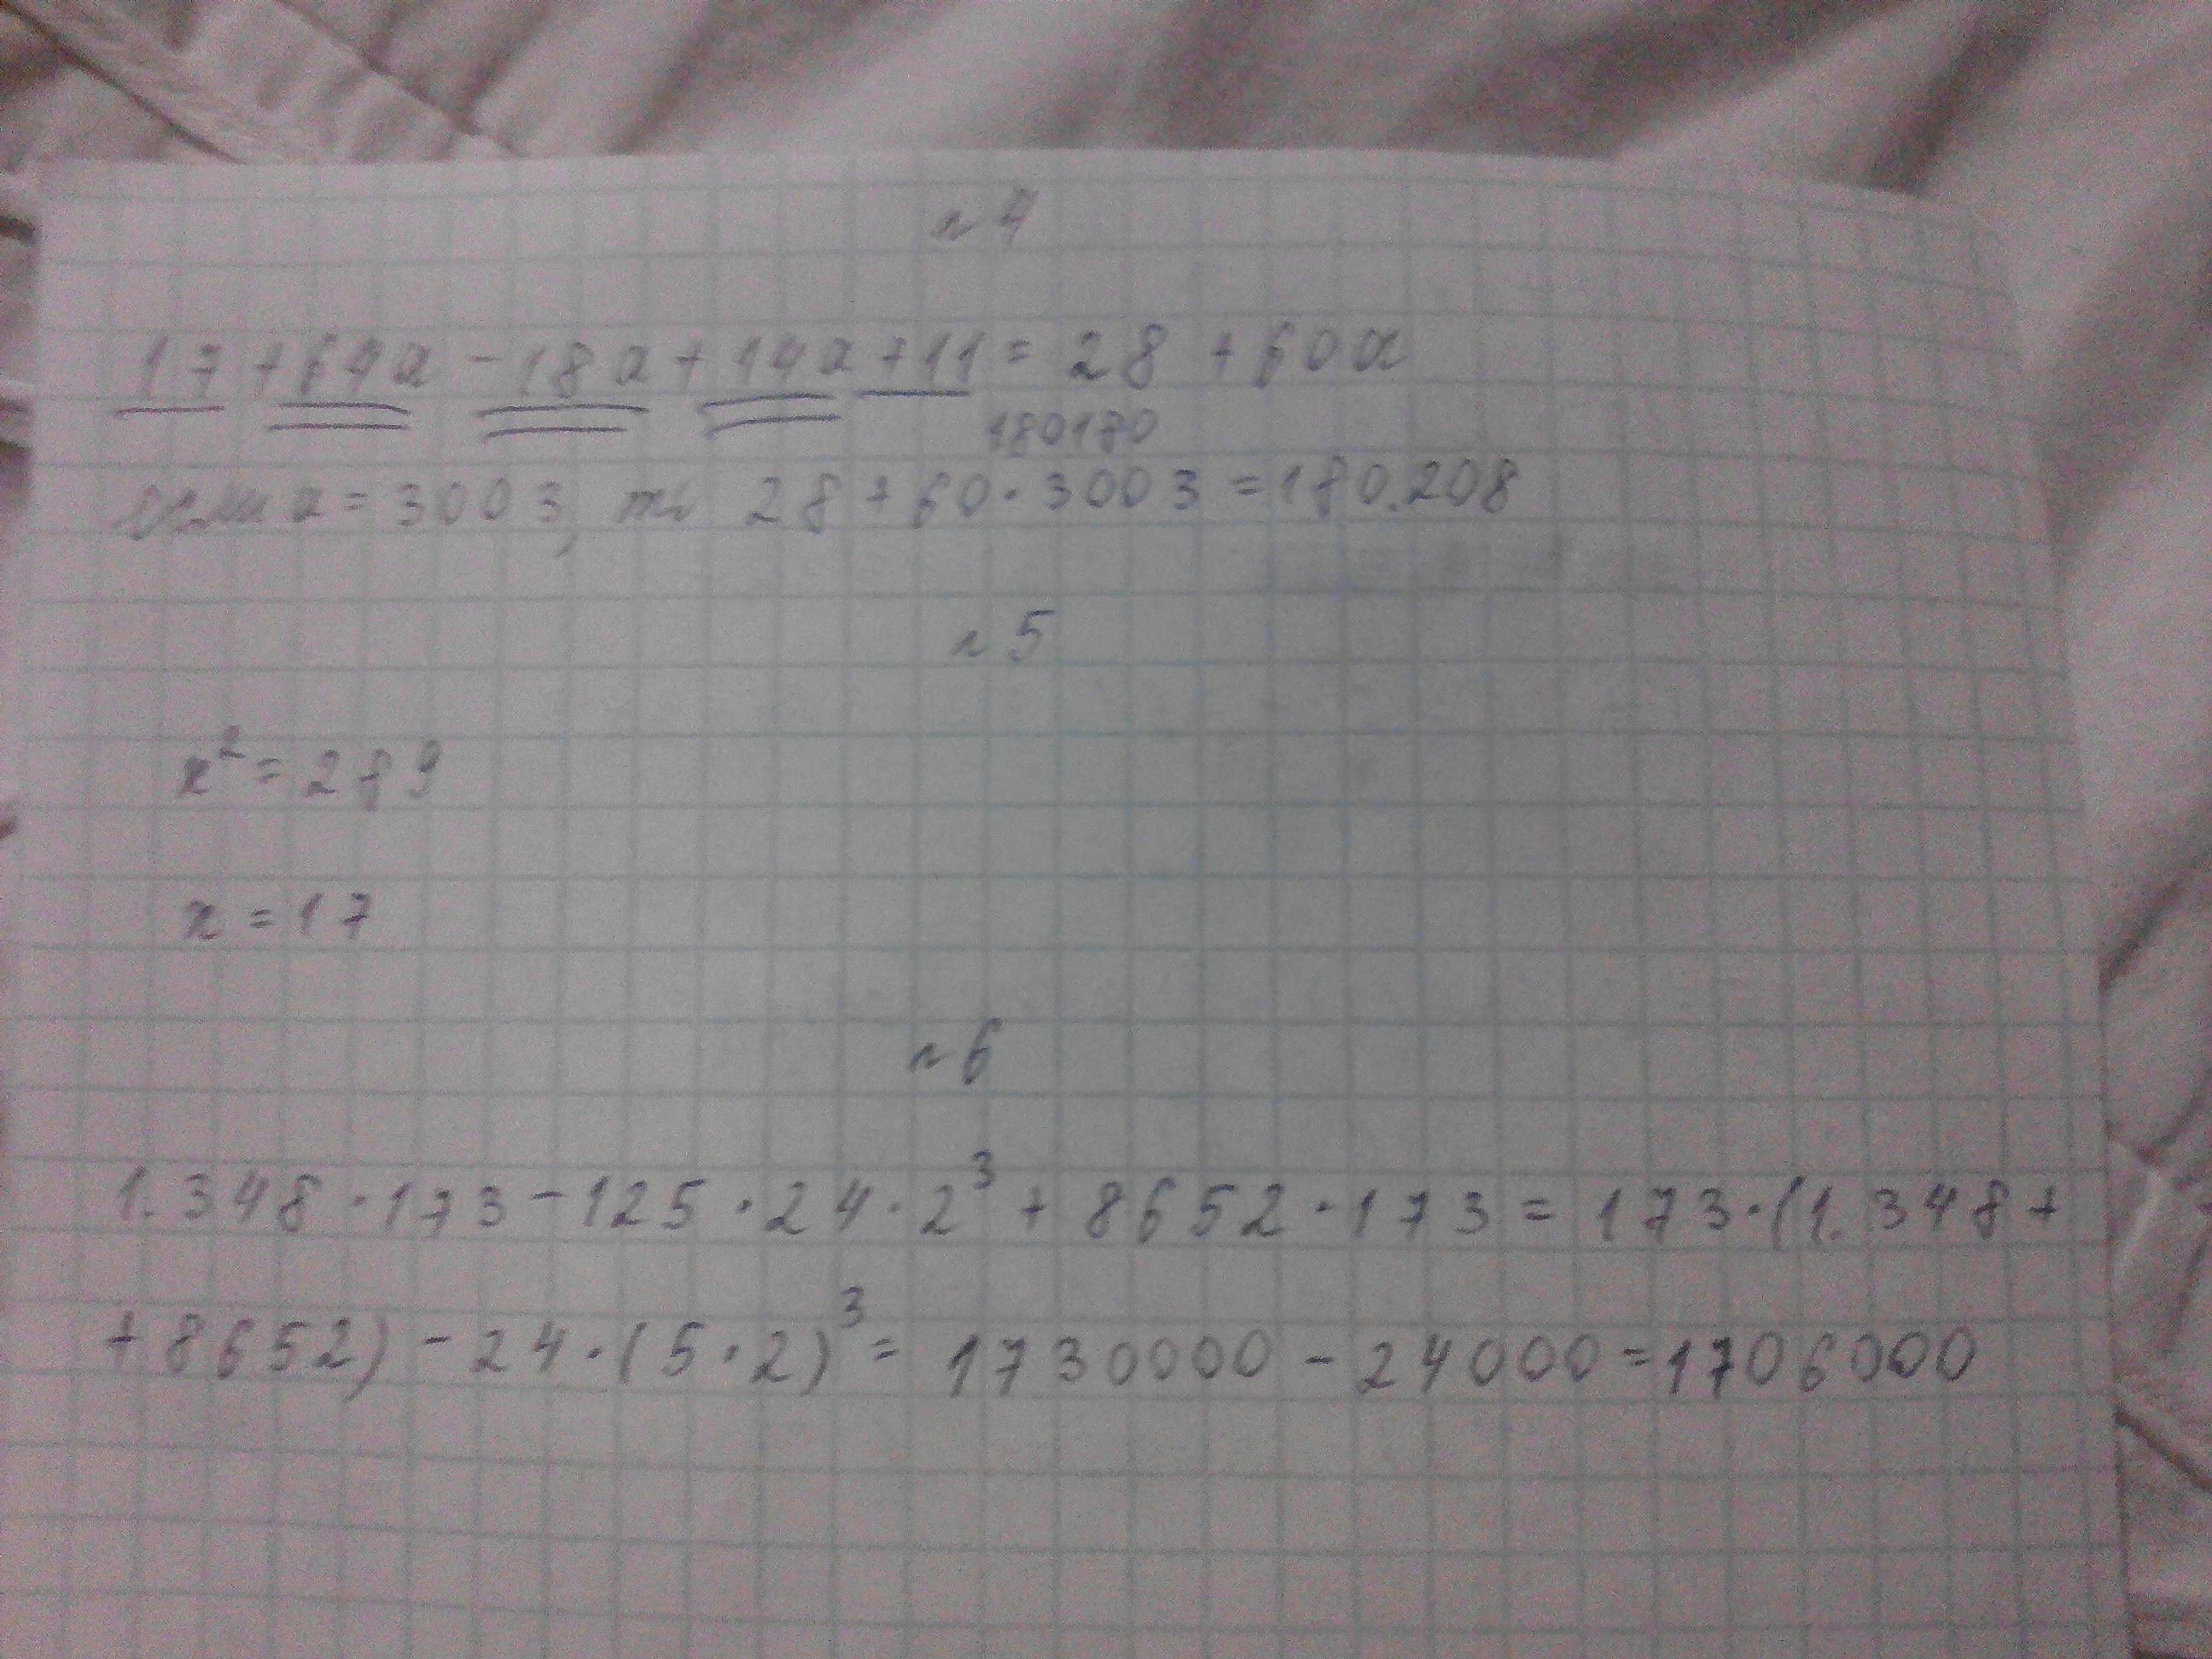 n 4
17 + 64a - 18a + 14a + 11 = 28 + 60a
180180
если a = 3003, то 28 + 60 · 3003 = 180.208
n 5
x² = 289
x = 17
n 6
1.348 · 173 - 125 · 24 · 2³ + 8652 · 173 = 173 · (1.348 +
+ 8652) - 24 · (5 · 2)³ = 1730000 - 24000 = 1706000